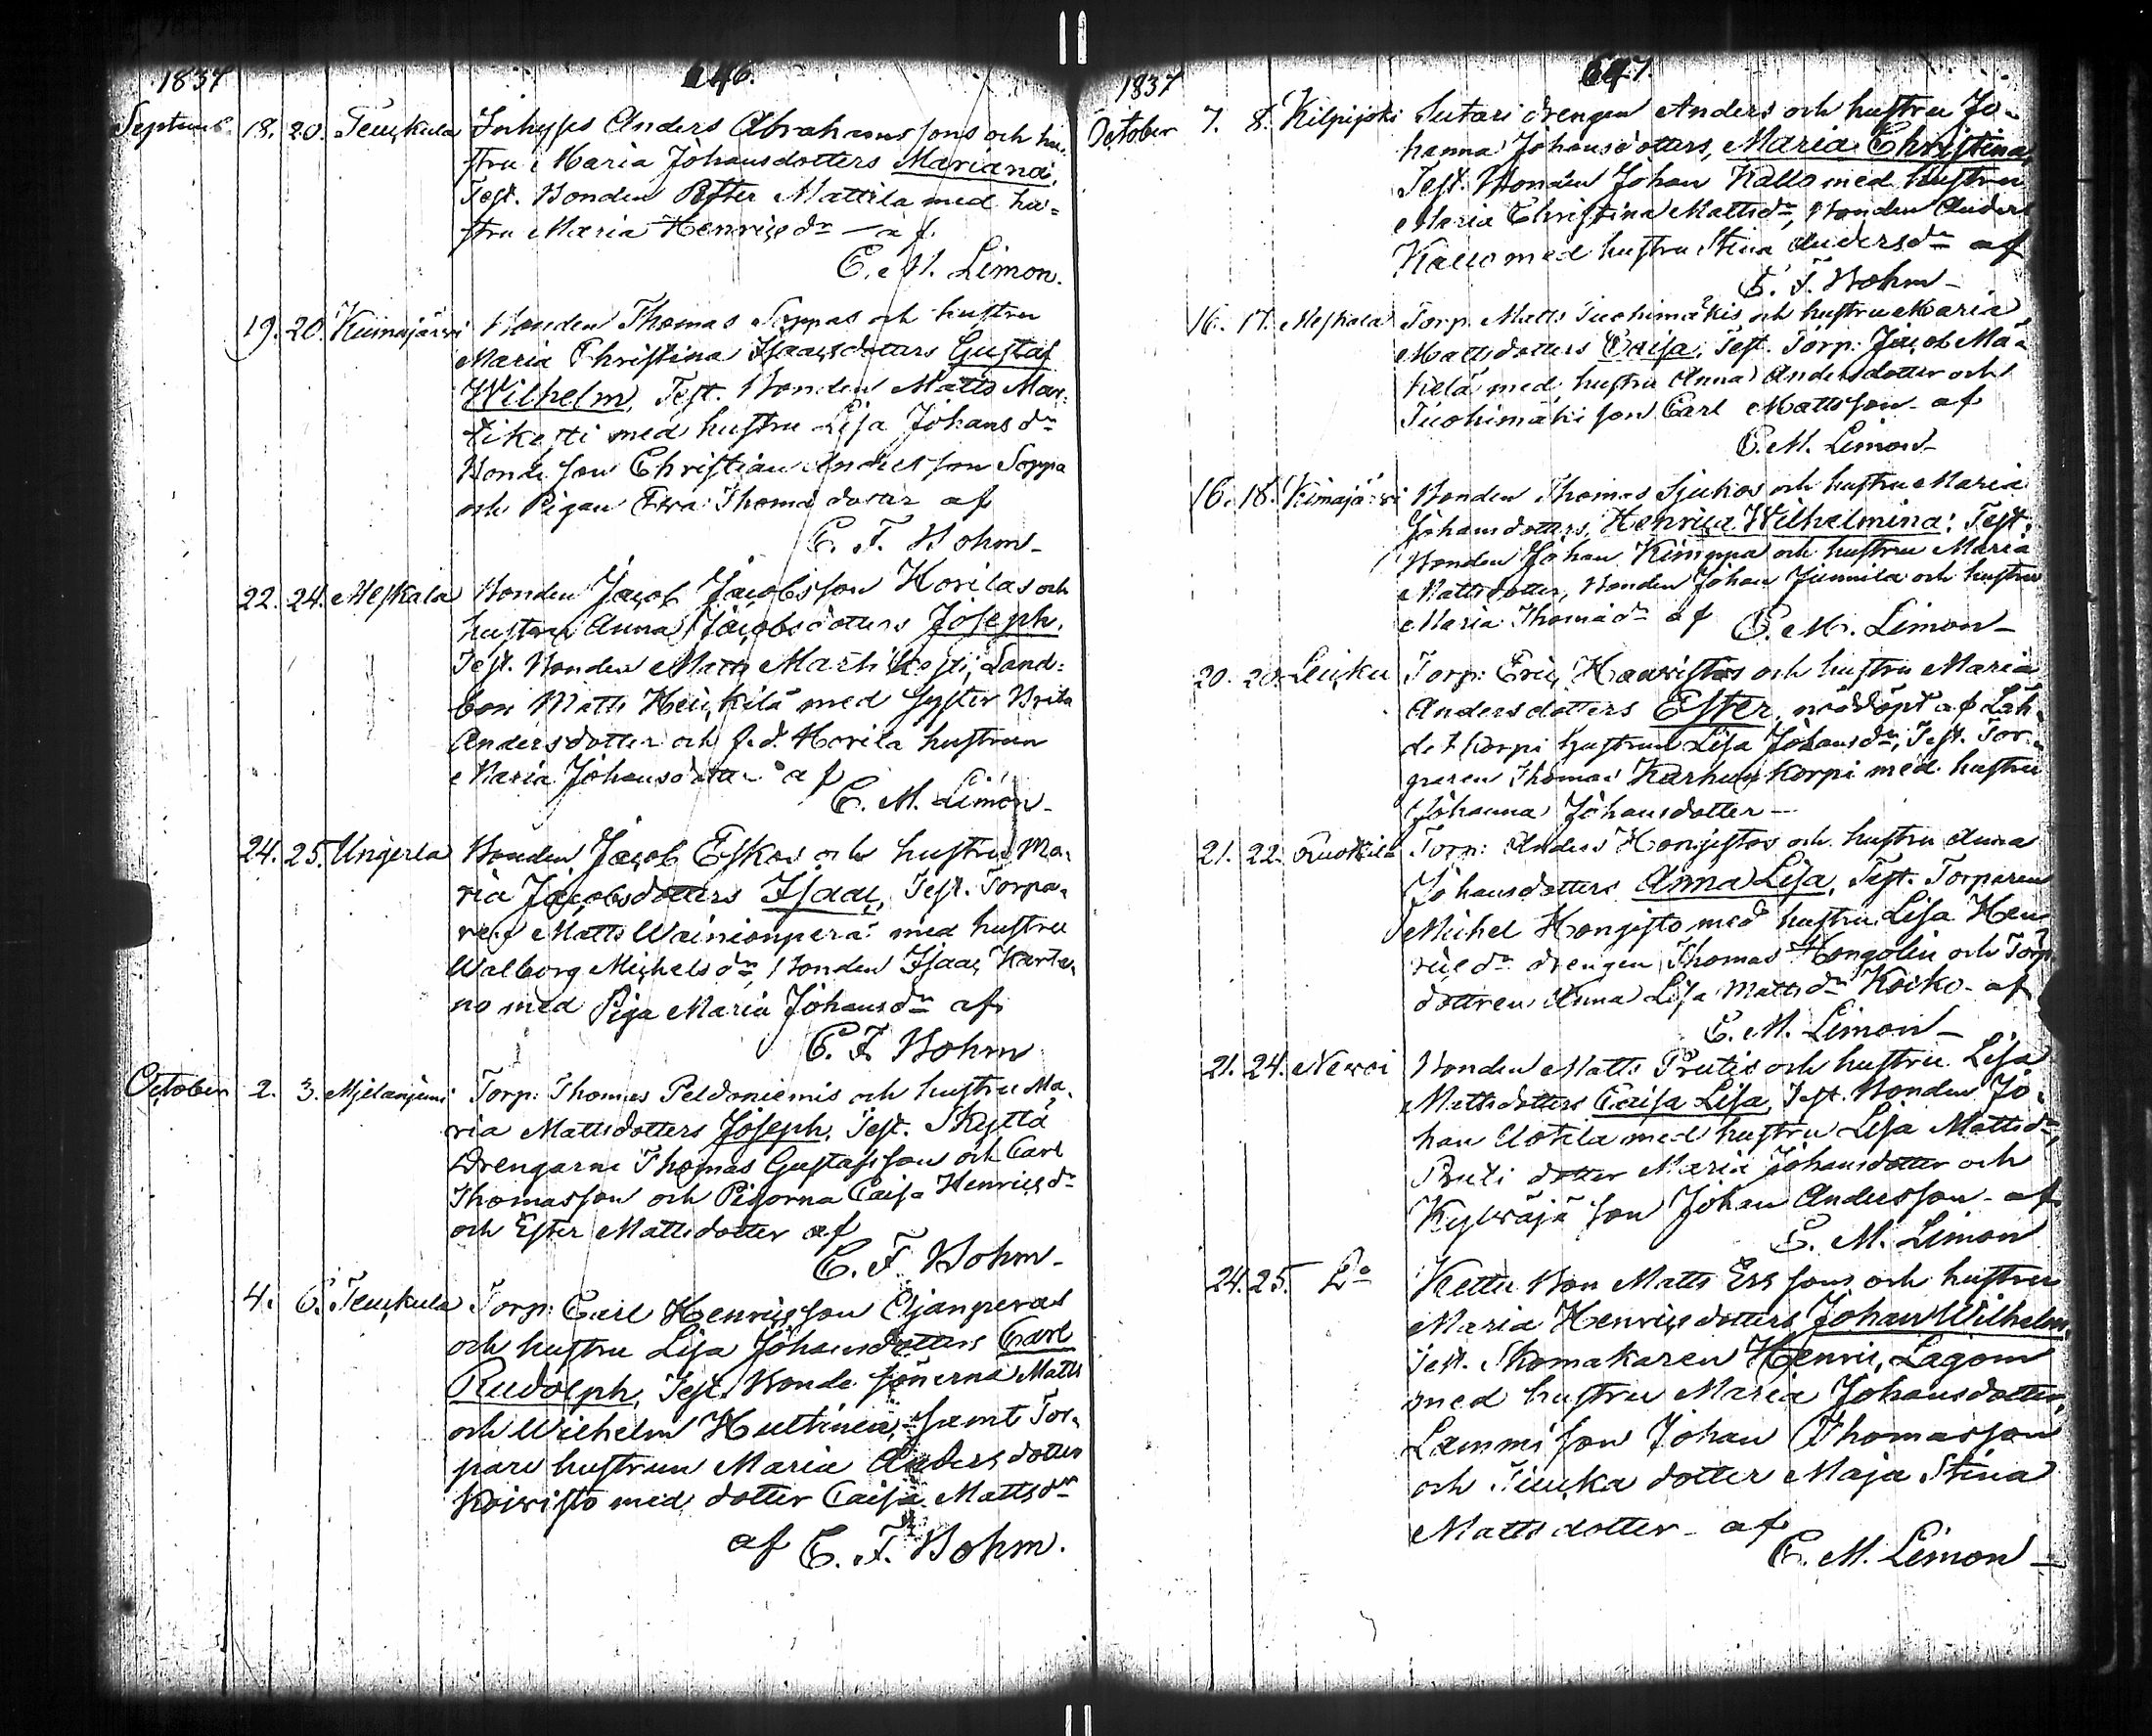 1837 646.
Septemb. 18. 20. Teuckula Inhyses Anders Abrahamssons och hu-
stru Maria Johansdotters Mariana,
Test. Bonden Petter Mattila med hu=
stru Maria Henricsdr af
C. M. Limon.
19. 20. Kiimajärvi Bonden Thomas Soppas och hustru
Maria Christina Isaacsdotters Gustaf
Wilhelm, Test. Bonden Matts Mar-
tikesti med hustru Lisa Johansdr
Bonde son Christian Andersson Soppa
och Pigan Eva Thomædotter af
C. F. Bohm-
22. 24. Meskala Bonden Jacob Jacobsson Horilas och
hustru Anna Jacobsdotters Joseph.
Test. Bonden Matts Martikesti, Land=
bon Matts Heickilä med Syster Brita
Andersdotter och f.d. Horila hustrun
Maria Johansdotter af
C. M. Limon-
24. 25. Ungerla Bonden Jacob Eskos och hustru Ma-
ria Jacobsdotters Isaac, Test. Torpa-
ren Matts Wainionperä med hustru
Walborg Michelsdr, Bonden Isaac Karta-
no med Piga Maria Johansdr af
C. F. Bohm
October 2. 3. Mjelanjemi Torp: Thomas Peldoniemis och hustru Ma-
ria Mattsdotters Joseph, Test. Skyttä
Drengarne Thomas Gustafsson och Carl
Thomasson och Pigorna Caisa Henricsdr
och Ester Mattsdotter af
C. F. Bohm-
4. 6. Teuckula Torp: Carl Henricsson Ojanperas
och hustru Lisa Johansdotters Carl
Rudolph, Test. Bonde Sönerna Matts
och Wilhelm Hultinen, samt Tor-
pare hustrun Maria Andersdotter
Koivisto med dotter Caisa Mattsdr
af C. F. Bohm.
1837 647.
October 7. 8. Kilpijoki Sutari drengen Anders och hustru Jo-
hanna Johansdotters, Maria Christina,
Test. Bonden Johan Kallo med hustru
Maria Christina Mattsdr, Bonden Anders
Kallo med hustru Stina Andersdr af
C. F. Bohm-
16. 17. Meskala Torp. Matts Tuohimäkis och hustru Maria
Mattsdotters Caisa, Test. Torp: Jacob Mä-
kelä med hustru Anna Andersdotter och
Tuohimäki son Carl Mattsson af
C. M. Limon-
16. 18. Kimajärvi Bonden Thomas Sjukos och hustru Maria
Johansdotters, Henrica Wilhelmina: Test.
Bonden Johan Kimppa och hustru Maria
Mattsdotter, Bonden Johan Junnila och hustru
Maria Thomædr af C. M. Limon-
20. 20. Leicku Torp: Eric Haavistos och hustru Maria
Andersdotters Ester, nöddöpt af Läh-
det Korpi hustrun Lisa Johansdr, Test. Tor-
paren Thomas Karhun Korpi med hustru
Johanna Johansdotter-
21. 22. Ruokila Torp: Anders Hongistos och hustru Anna
Johansdotters Anna Lisa, Test. Torparen
Michel Hongisto med hustru Lisa Hen-
ricsdr drengen Thomas Hongolin och Torp.
dottren Anna Lisa Mattsdr Koiko- af
C. M. Limon-
21. 24. Newoi Bonden Matts Prutis och hustru Lisa
Mattsdotters Caisa Lisa, Test. Bonden Jo-
han Uotila med hustru Lisa Mattsdr,
Pruti dotter Maria Johansdotter och
Kylväjä son Johan Andersson- af
C. M. Limon
24. 25. Do Kettu Bon Matts Erssons och hustru
Maria Henricsdotters Johan Wilhelm,
Test. Skomakaren Henric Lagom
med hustru Maria Johansdotter,
Lammi son Johan Thomasson
och dotter Maja Stina
Mattsdotter- af
C. M. Limon-